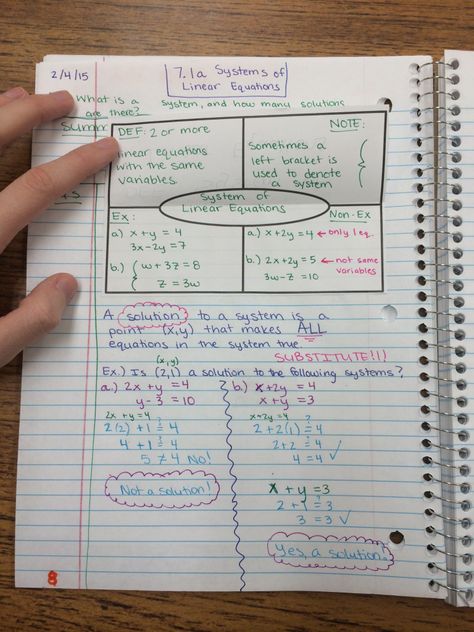 2/4/15
7.1a Systems of
Linear Equations
What is a system, and how many solutions
are there?
DEF: 2 or more
linear equations
with the same
variables.
NOTE:
Sometimes a
left bracket is
used to denote
a system
{
System of
Linear Equations
Ex:
a.) x + y = 4
3x - 2y = 7
b.) { w + 3z = 8
z = 3w
Non-Ex
a.) x + 2y = 4 ← only 1 eq.
b.) 2x + 2y = 5 ← not same
variables
3w - z = 10
A solution to a system is a
point (x,y) that makes ALL
equations in the system true.
SUBSTITUTE!!!
(x,y)
Ex.) Is (2,1) a solution to the following systems?
a.) 2x + y = 4
y - 3 = 10
2x + y = 4
2(2) + 1 ≟ 4
4 + 1 ≟ 4
5 ≠ 4 NO!
Not a solution!
b.) x + 2y = 4
x + y = 3
x + 2y = 4
2 + 2(1) ≟ 4
2 + 2 ≟ 4
4 = 4 ✓
x + y = 3
2 + 1 ≟ 3
3 = 3 ✓
Yes, a solution!
8